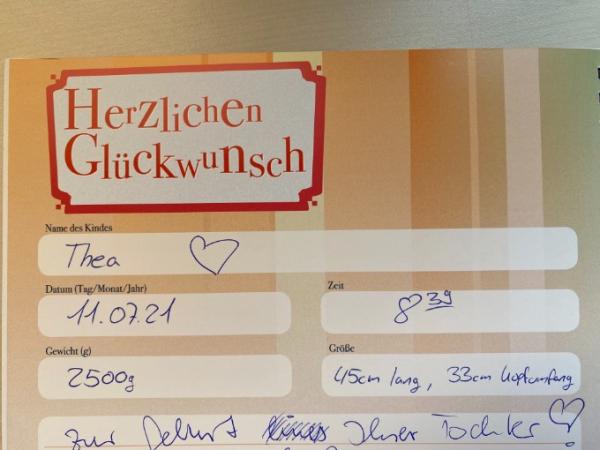 Herzlichen
Glückwunsch
Name des Kindes
Thea
Datum (Tag/Monat/Jahr)
Zeit
11.07.21
8 39
Gewicht (g)
Größe
2500g
45cm lang, 33cm Kopfumfang
zur Geburt Ihrer Tochter